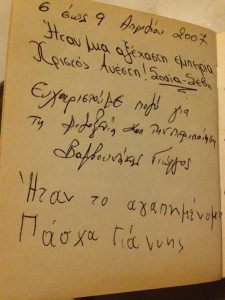 6 έως 9 Απριλίου 2007
Ήταν μια αξέχαστη εμπειρία
Χριστός Ανέστη!
Ευχαριστούμε πολύ για
τη φιλοξενία και την περιποίηση
Γιώργος
Ήταν το αγαπημένο μου
Πάσχα Γιάννης